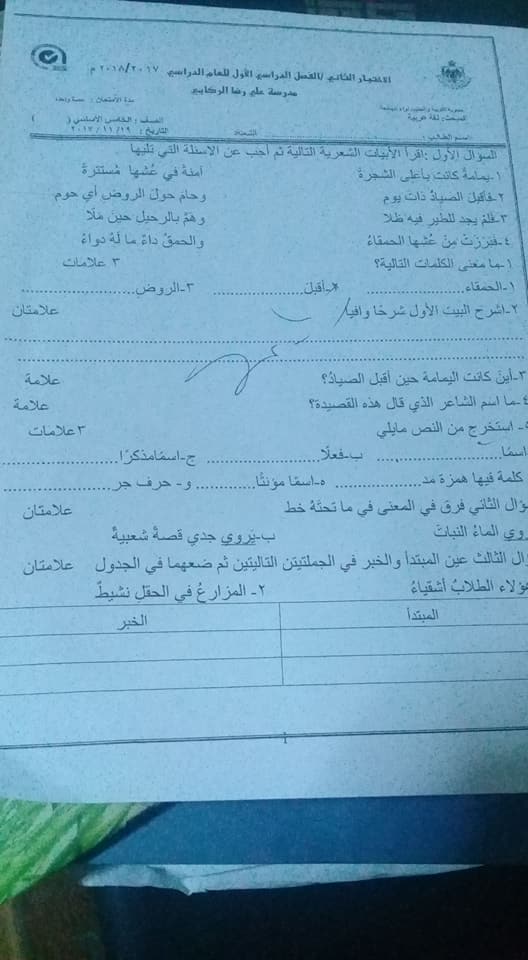 الاختبار الثاني /الفصل الدراسي الأول للعام الدراسي ٢٠١٨/٢٠١٧ م
مدرسة علي رضا الركابي
المبحث: لغة عربية
مدة الامتحان: حصة واحدة
اسم الطالب:
الشعبة
الصف: الخامس الأساسي ( )
التاريخ: ٢٠١٧/١١/١٩
السؤال الأول :اقرأ الأبيات الشعرية التالية ثم أجب عن الاسئلة التي تليها
١-يمامةٌ كانت بأعلى الشجرة آمنة في عُشها مُستترة
٢-فأقبل الصيادُ ذات يوم وحام حول الروض أي حوم
٣-فلم يجد للطير فيه ظلا وهمّ بالرحيل حين ملّا
٤-فبرزت مِنْ عُشها الحمقاءُ والحمقُ داءٌ ما لَهُ دواءُ
١-ما معنى الكلمات التالية؟ ٣ علامات
١-الحمقاء.................... ٢-أقبلَ.................... ٣-الروض....................
٢-اشرح البيت الأول شرحًا وافيا/ علامتان
٣-أينَ كانت اليمامة حين أقبل الصيادُ؟ علامة
٤-ما اسم الشاعر الذي قال هذه القصيدة؟ علامة
٥- استخرج من النص مايلي ٣ علامات
اسمًا.................... ب-فعلًا.................... ج-اسمًامذكرًا....................
كلمة فيها همزة مد.................... ه-اسمًا مؤنثًا.................... و- حرف جر....................
ؤال الثاني فرق في المعنى في ما تحتَهُ خط علامتان
روي الماءُ النباتَ ب-يَروي جدي قصةً شعبيةً
ال الثالث عين المبتدأ والخبر في الجملتين التاليتين ثم ضعهما في الجدول علامتان
ؤلاء الطلابُ أشقياءُ ٢- المزارعُ في الحقل نشيطٌ
المبتدأ الخبر
1